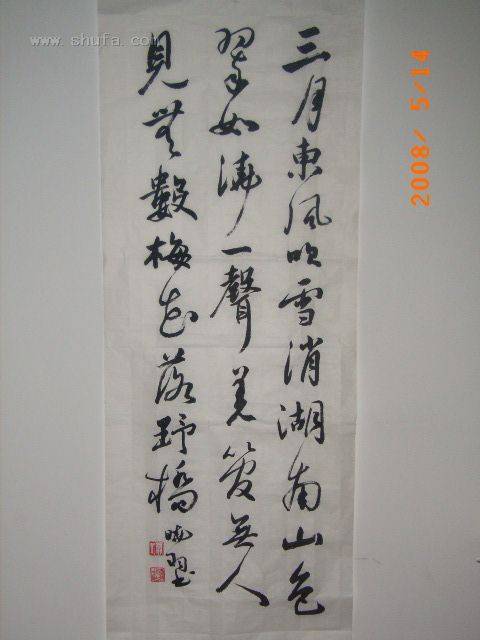 三月東風吹雪消湖南山色
翠如澆一聲羌管無人
見無數梅花落野橋
www.shufa.com
2008/ 5/14